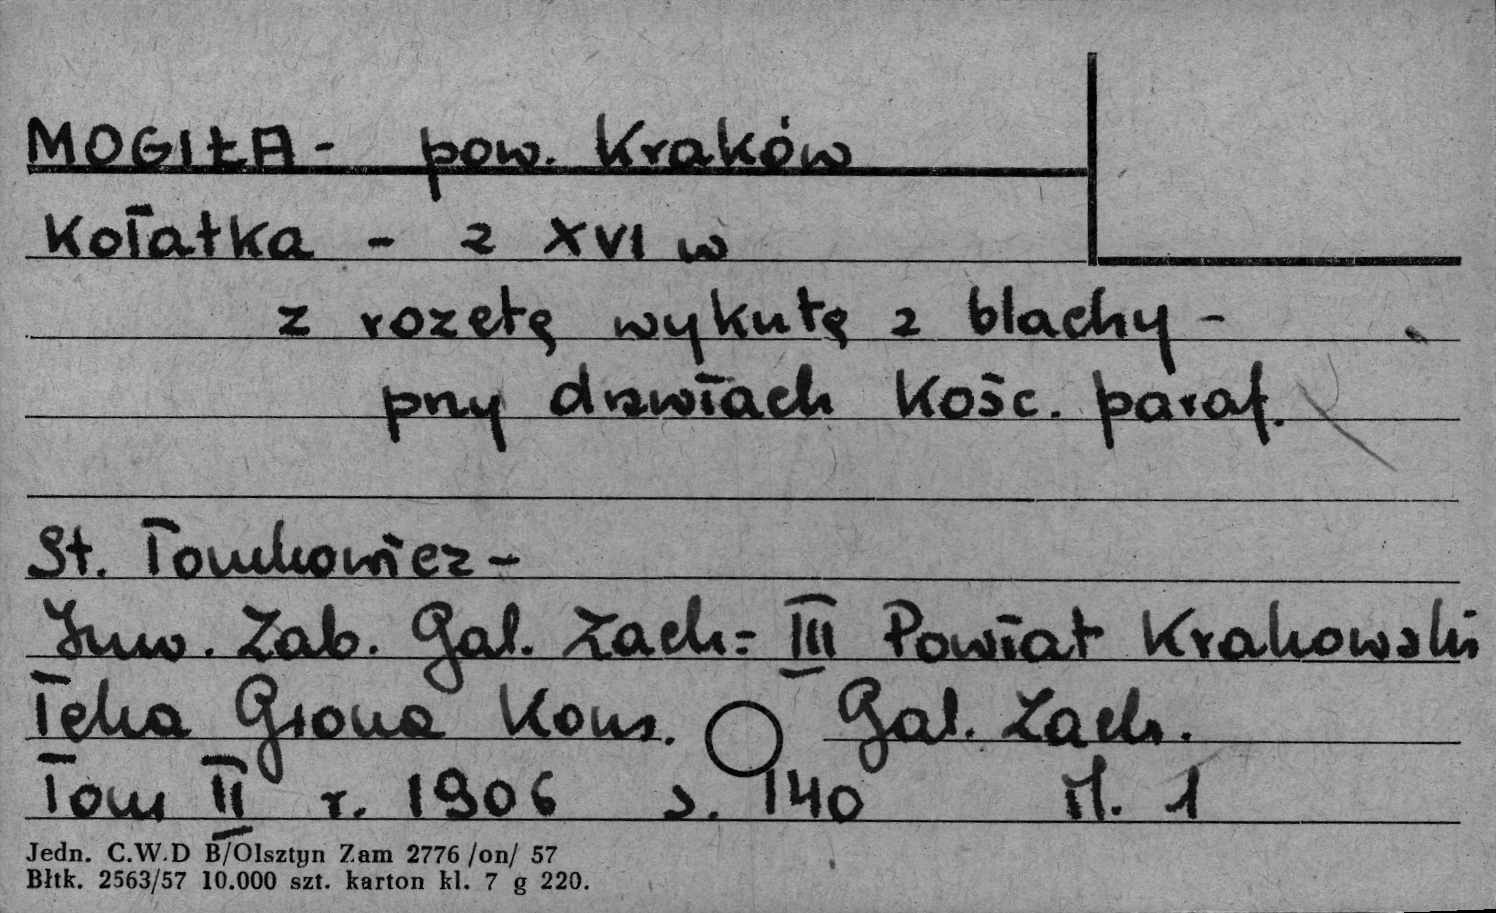 MOGIŁA - pow. Kraków
Kołatka - z XVI w
z rozetę wykutę z blachy -
przy drzwiach Kośc. paraf.
St. Tomkowicz -
Inw. Zab. Gal. Zach. = III Powiat Krakowski
Teka Grona Kons. Gal. Zach.
Tom II r. 1906 s. 140 il. 1
Jedn. C.W.D B/Olsztyn Zam 2776 /on/ 57
Błtk. 2563/57 10.000 szt. karton kl. 7 g 220.